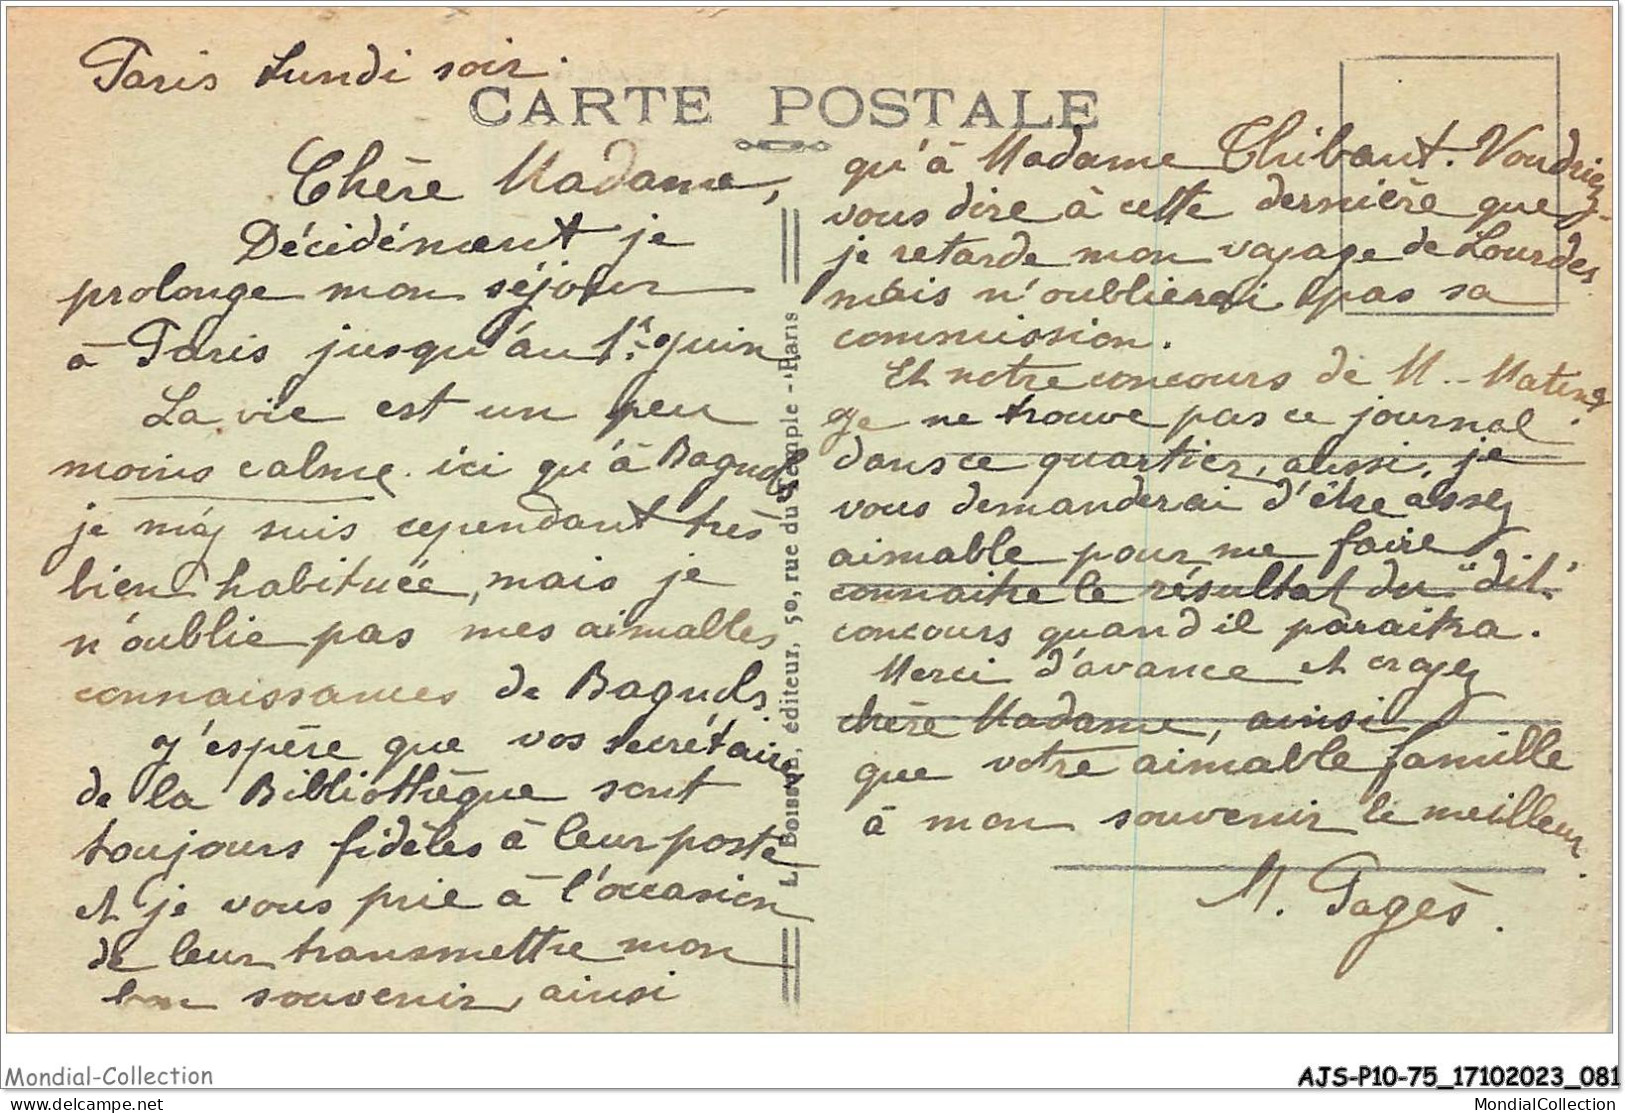 Paris Lundi soir.
CARTE POSTALE
Chère Madame,
Décidément je
prolonge mon séjour
à Paris jusqu'au 1er Juin
La vie est un peu
moins calme ici qu'à Bagnols
je m'y suis cependant très
bien habituée, mais je
n'oublie pas mes aimables
connaissances de Bagnols.
J'espère que vos secrétaires
de la Bibliothèque sont
toujours fidèles à leur poste
et je vous prie à l'occasion
de leur transmettre mon
bon souvenir, ainsi
qu'à Madame Thibaut. Voudriez-
vous dire à cette dernière que
je retarde mon voyage de Lourdes
mais n'oublierai pas sa
commission.
Et notre concours de M.-Matin?
Je ne trouve pas ce journal
dans ce quartier, aussi, je
vous demanderai d'être assez
aimable pour me faire
connaitre le résultat du "dit"
concours quand il paraitra.
Merci d'avance et croyez
chère Madame, ainsi
que votre aimable famille
à mon souvenir le meilleur.
M. Pagès.
éditeur, 50, rue du Temple - Paris
Mondial-Collection
AJS-P10-75_17102023_081
delcampe.net
MondialCollection